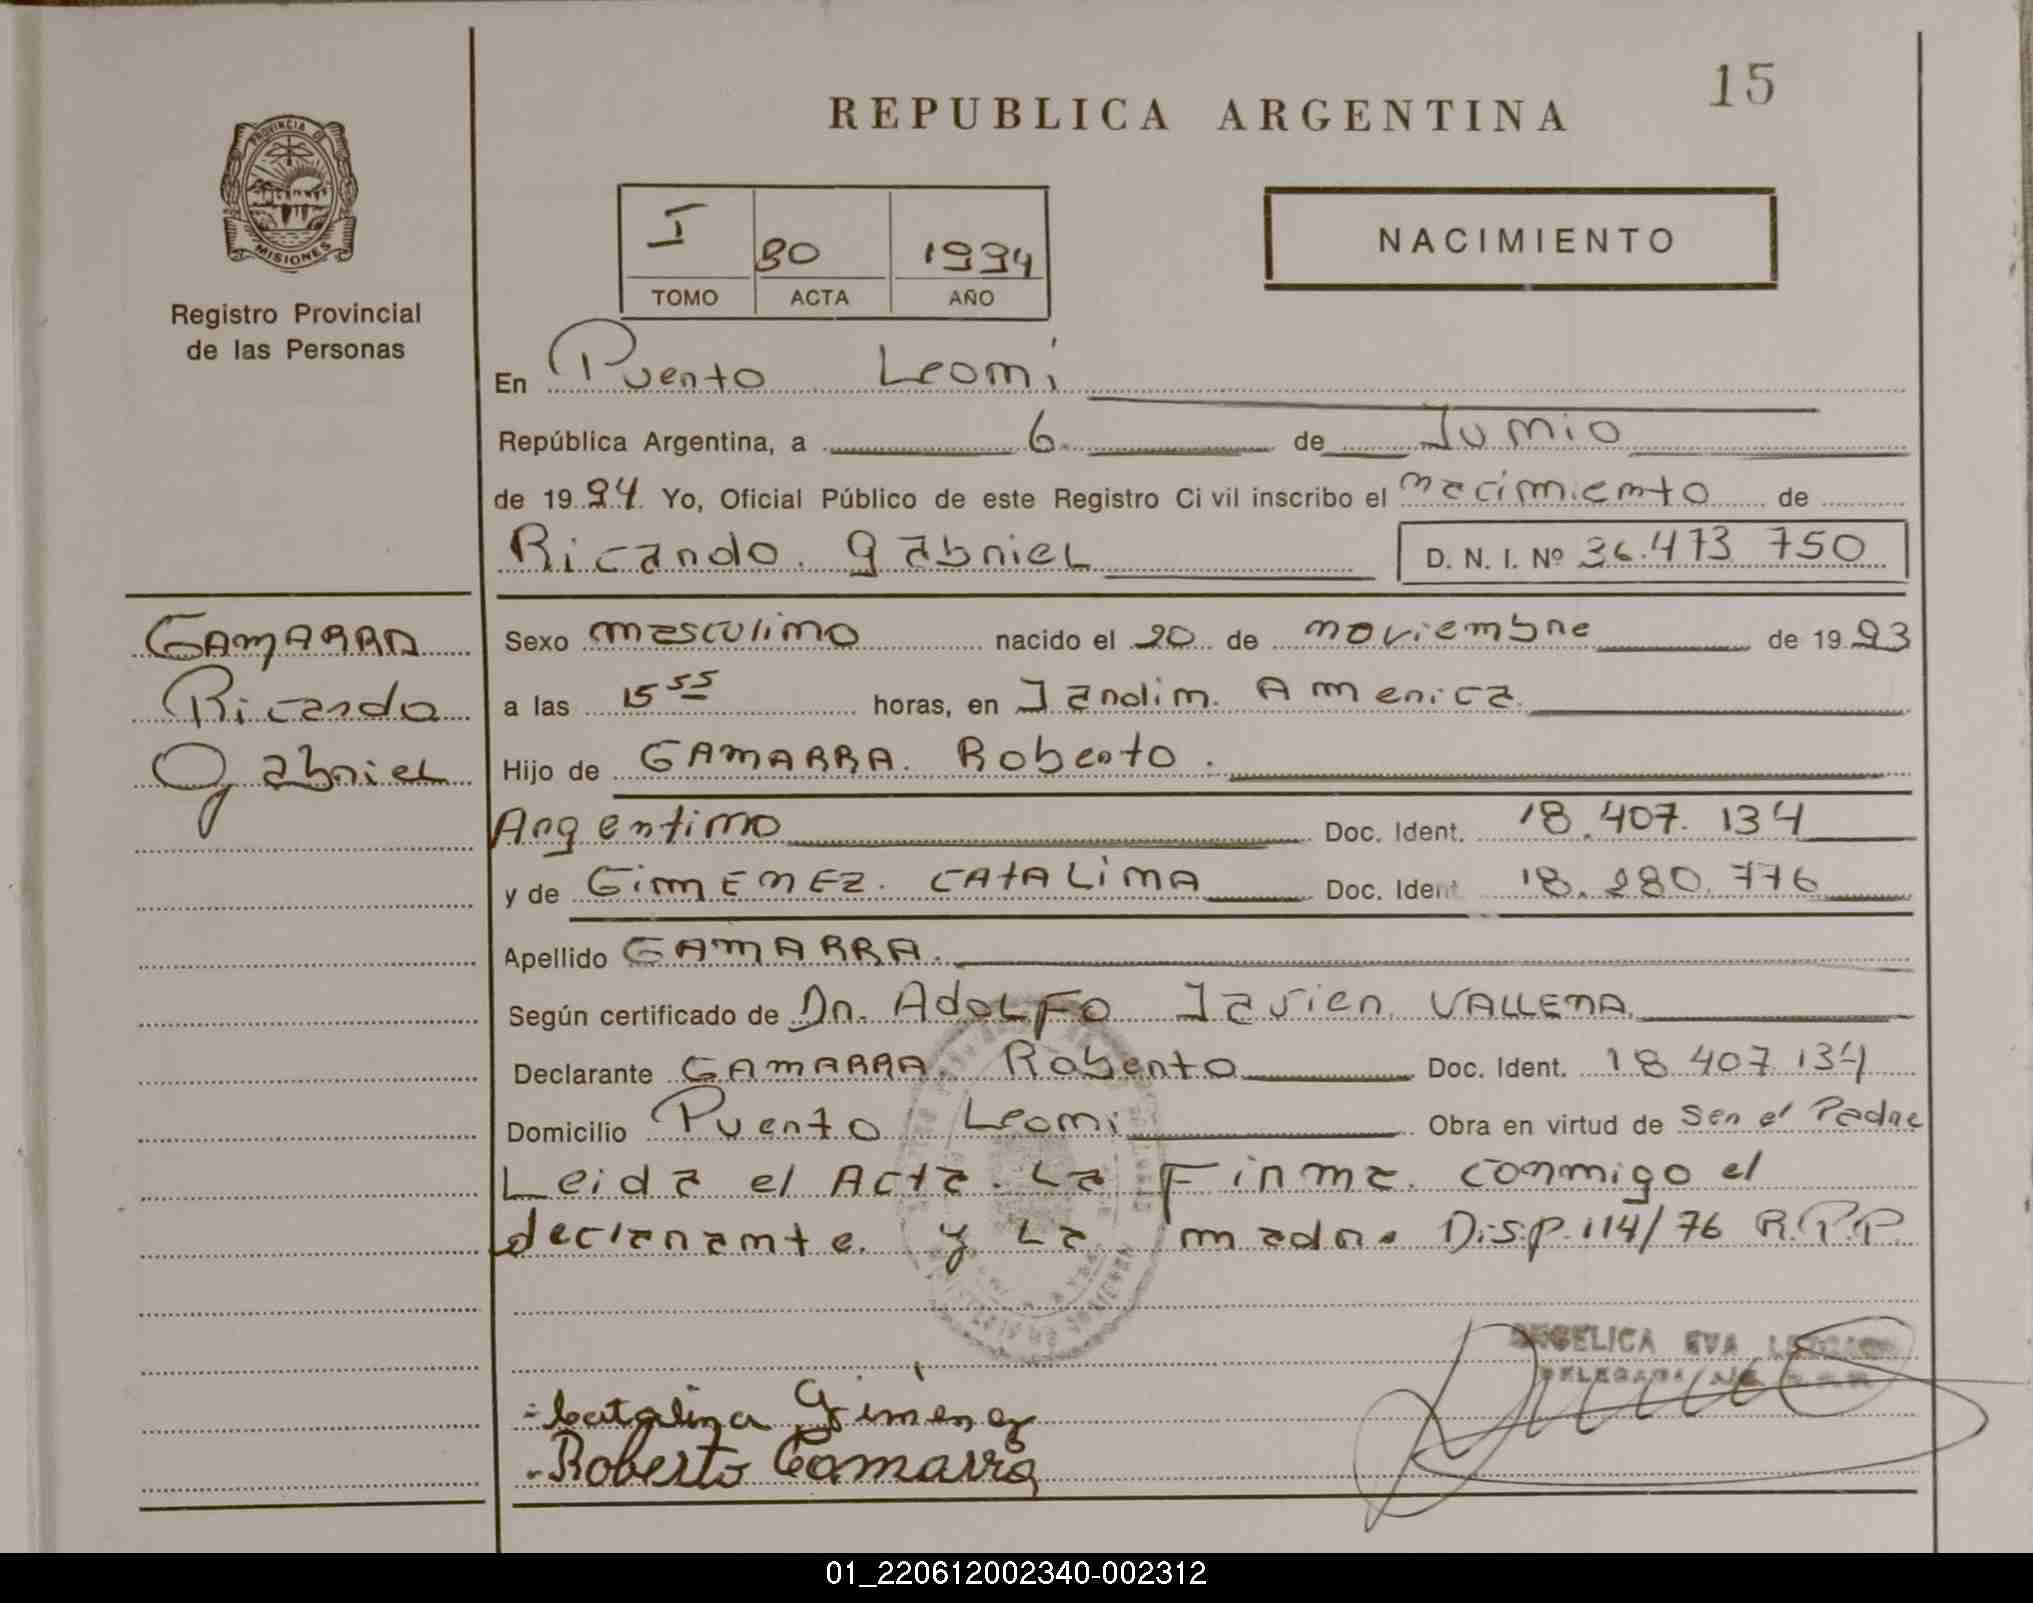 15
REPUBLICA ARGENTINA
PROVINCIA DE
MISIONES
Registro Provincial
de las Personas
I 80 1994
TOMO ACTA AÑO
NACIMIENTO
En Puerto Leoni
República Argentina, a 6 de Junio
de 1994. Yo, Oficial Público de este Registro Civil inscribo el nacimiento de
Ricardo Gabriel D. N. I. Nº 36.473 750
GAMARRA
Ricardo
Gabriel
Sexo masculino nacido el 20 de noviembre de 1993
a las 15 55 horas, en Jardin America
Hijo de GAMARRA. Roberto.
Argentino Doc. Ident. 18.407.134
y de GimENEZ. CATALiNA Doc. Ident 18.280.776
Apellido GAMARRA.
Según certificado de Dr. AdoLFo Javier VALLENA.
Declarante GAMARRA. Roberto Doc. Ident. 18 407 134
Domicilio Puerto Leoni Obra en virtud de Ser el Padre
Leida el Acta. La Firma conmigo el
declarante y La madre Disp. 114/76 R.P.P.
ANGELICA EVA
DELEGADA
Catalina Gimenez
Roberto Gamarra
01_220612002340-002312